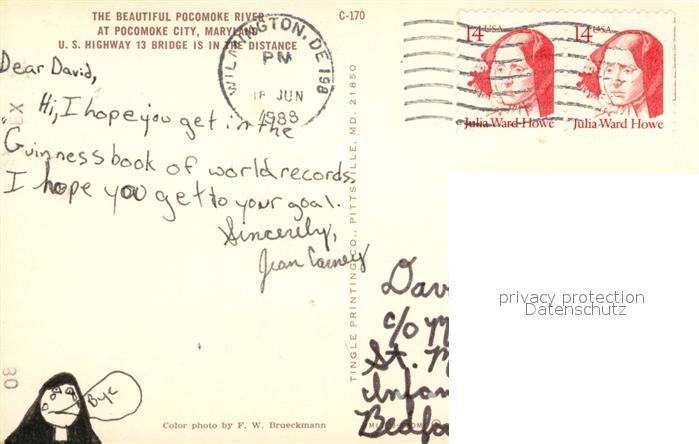 THE BEAUTIFUL POCOMOKE RIVER
AT POCOMOKE CITY, MARYLAND
U. S. HIGHWAY 13 BRIDGE IS IN THE DISTANCE
C-170
WILMINGTON, DE 198
PM
18 JUN
1988
14 USA
Julia Ward Howe
14 USA
Julia Ward Howe
Dear David,
Hi, I hope you get in the
Guinness book of world records.
I hope you get to your goal.
Sincerely,
Jean
TINGLE PRINTING CO., PITTSVILLE, MD. 21850
Dav
c/o
St. M
Infan
Bedfo
privacy protection
Datenschutz
Bye
Color photo by F. W. Brueckmann